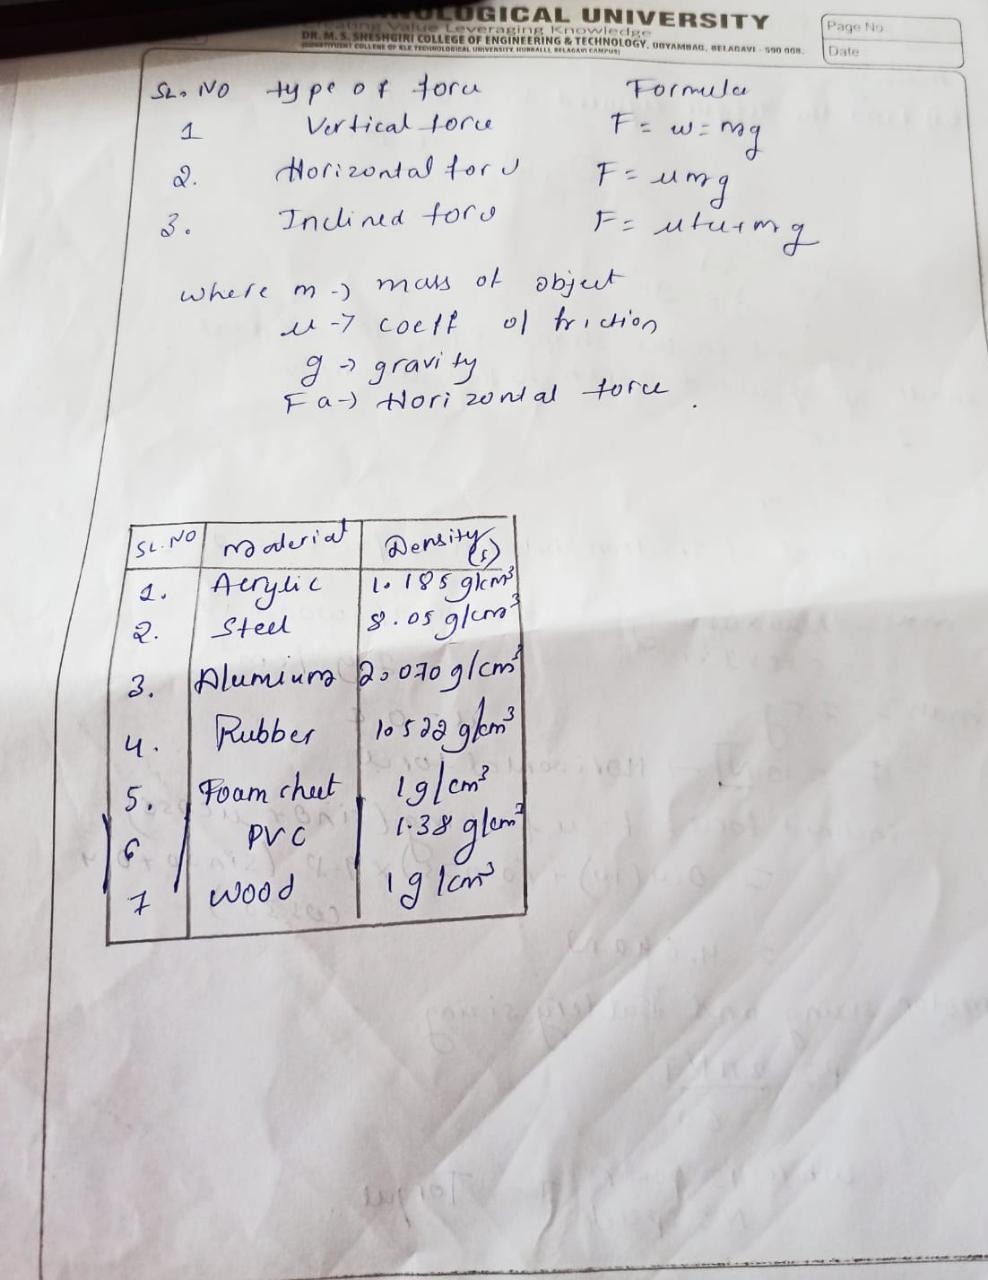 OLOGICAL UNIVERSITY
Creating Value Leveraging Knowledge
DR. M. S. SHESHGIRI COLLEGE OF ENGINEERING & TECHNOLOGY, UDYAMBAG, BELAGAVI - 590 008.
(CONSTITUENT COLLEGE OF KLE TECHNOLOGICAL UNIVERSITY, HUBBALLI, BELAGAVI CAMPUS)
Page No
Date
SL. NO type of force Formula
1 Vertical force F = w = mg
2. Horizontal force F = μmg
3. Inclined force F = mg
where m -> mass of object
μ -> coeff of friction
g -> gravity
Fa -> Horizontal force.
SL. NO Material Density
1. Acrylic 1.185 g/cm³
2. Steel 8.05 g/cm³
3. Alumium 2.070 g/cm³
4. Rubber 1.522 g/cm³
5. Foam cheet 1g/cm³
6 PVC 1.38 g/cm³
7 wood 1g/cm³